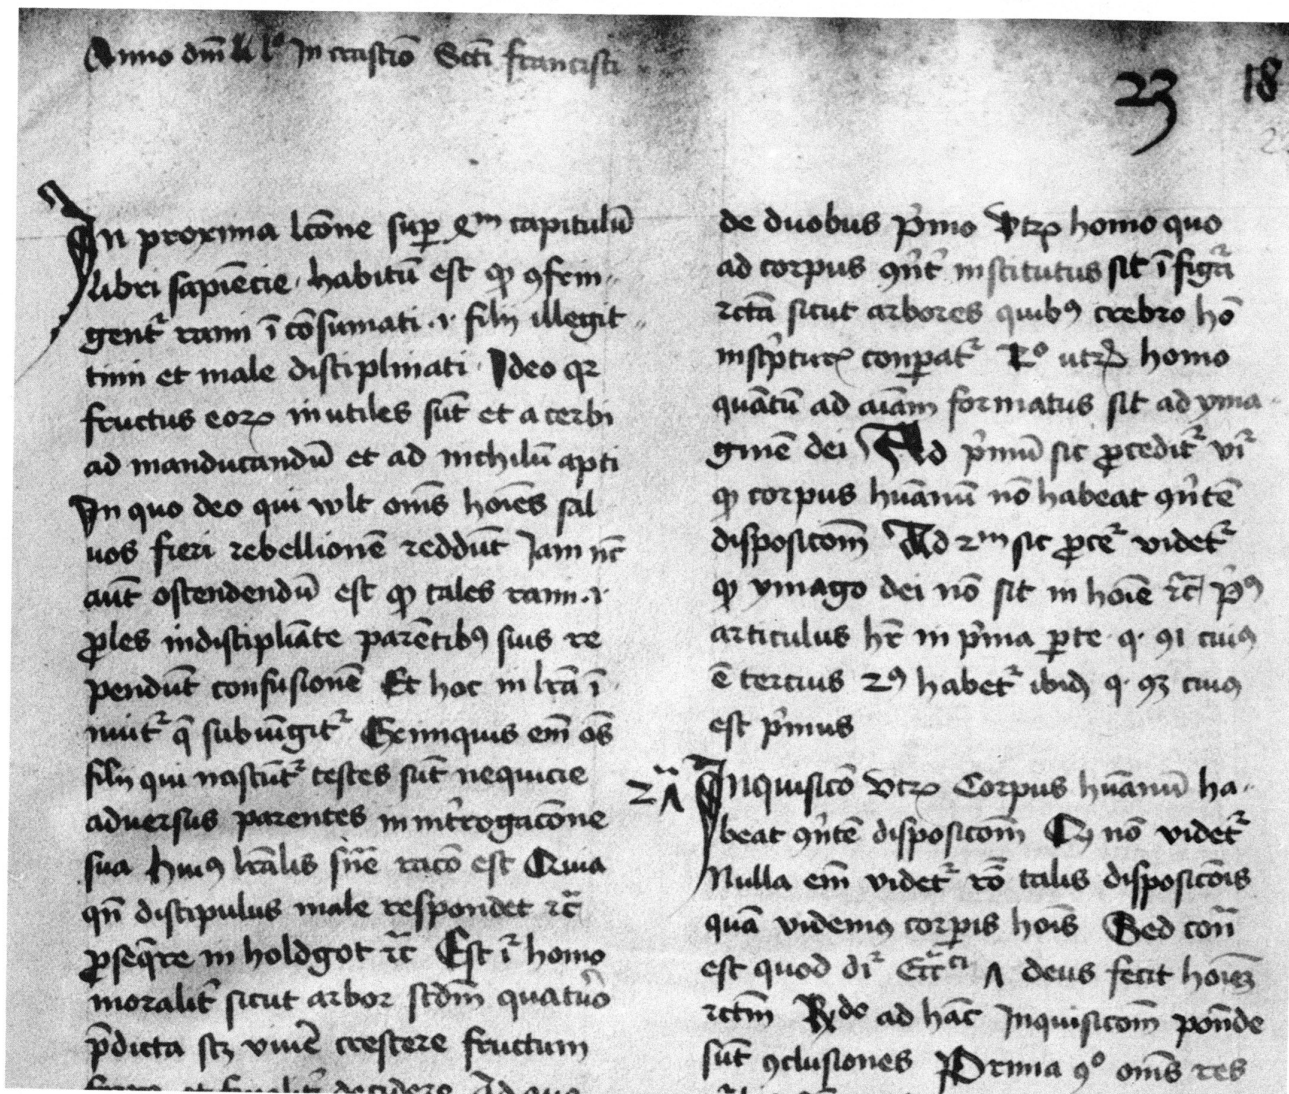 Anno dm̄ l° In crastīo Sctī francisci
23 18
In proxima lcōne sup 4m capitulū
libri sapiēcie habitū est ꝙ ꝯfrin
gentᷣ rami ī cōsumati .i. filij illegit
timi et male disciplinati Ideo qꝛ
fructus eoꝝ inutiles sūt et acerbi
ad manducandū et ad nichilū apti
In quo deo qui wlt om̄s hoīes sal
uos fieri rebellionē reddūt Jam nc̄
aūt ostendendū est ꝙ tales rami .i.
ꝓles indiscipliāte parētibꝰ suis re
pendūt confusionē Et hoc in lrā ī
nuitᷣ q̄ subiūgitᷣ Ex iniquis em̄ om̄s
filij qui nascūtᷣ testes sūt nequicie
adversus parentes in int̄rogacōne
sua Huiꝰ lrālis sn̄ie racō est Quia
qn̄ discipulus male respondet ⁊c̄
ꝓseq̄re in holdgot ⁊c̄ Est iᷣ homo
moralit̄ sicut arbor scdm̄ quatuor
p̄dicta scꝫ vivē crescere fructum
de duobus p̄mo Vtꝝ homo quo
ad corpus ꝯn̄t̄ institutus sit ī figura
rctā sicut arbores quibꝰ crebro hō
in scⁱpturꝭ conꝑatᷣ 2° utrū homo
quātū ad aīam formatus sit ad yma
ginē dei Ad p̄mū sic ꝓceditᷣ viᷣ
ꝙ corpus hūanū nō habeat ꝯn̄tē
disposicōm Ad 2m sic ꝓceᷣ videtᷣ
ꝙ ymago dei nō sit in hoīe ⁊c̄ p̄ꝰ
articulus hꝫ in p̄ma ꝑte q. 91 cuiꝰ
ē tercius 2ꝰ habetᷣ ibidꝫ q. 93 cuiꝰ
est p̄mus
Inquisicō Vtꝝ Corpus hūanū ha
beat ꝯn̄tē disposicōm Et nō videtᷣ
Nulla em̄ videtᷣ rō talis disposicōis
quā videmꝰ corꝑis hoīs Sed con̄
est quod diᷣ Ecc̄ci Λ deus fecit hoīeꝫ
rctm̄ Rdeo ad hāc Inquisicōm pōnde
sūt ꝯclusiones Prima ꝯ° om̄s res